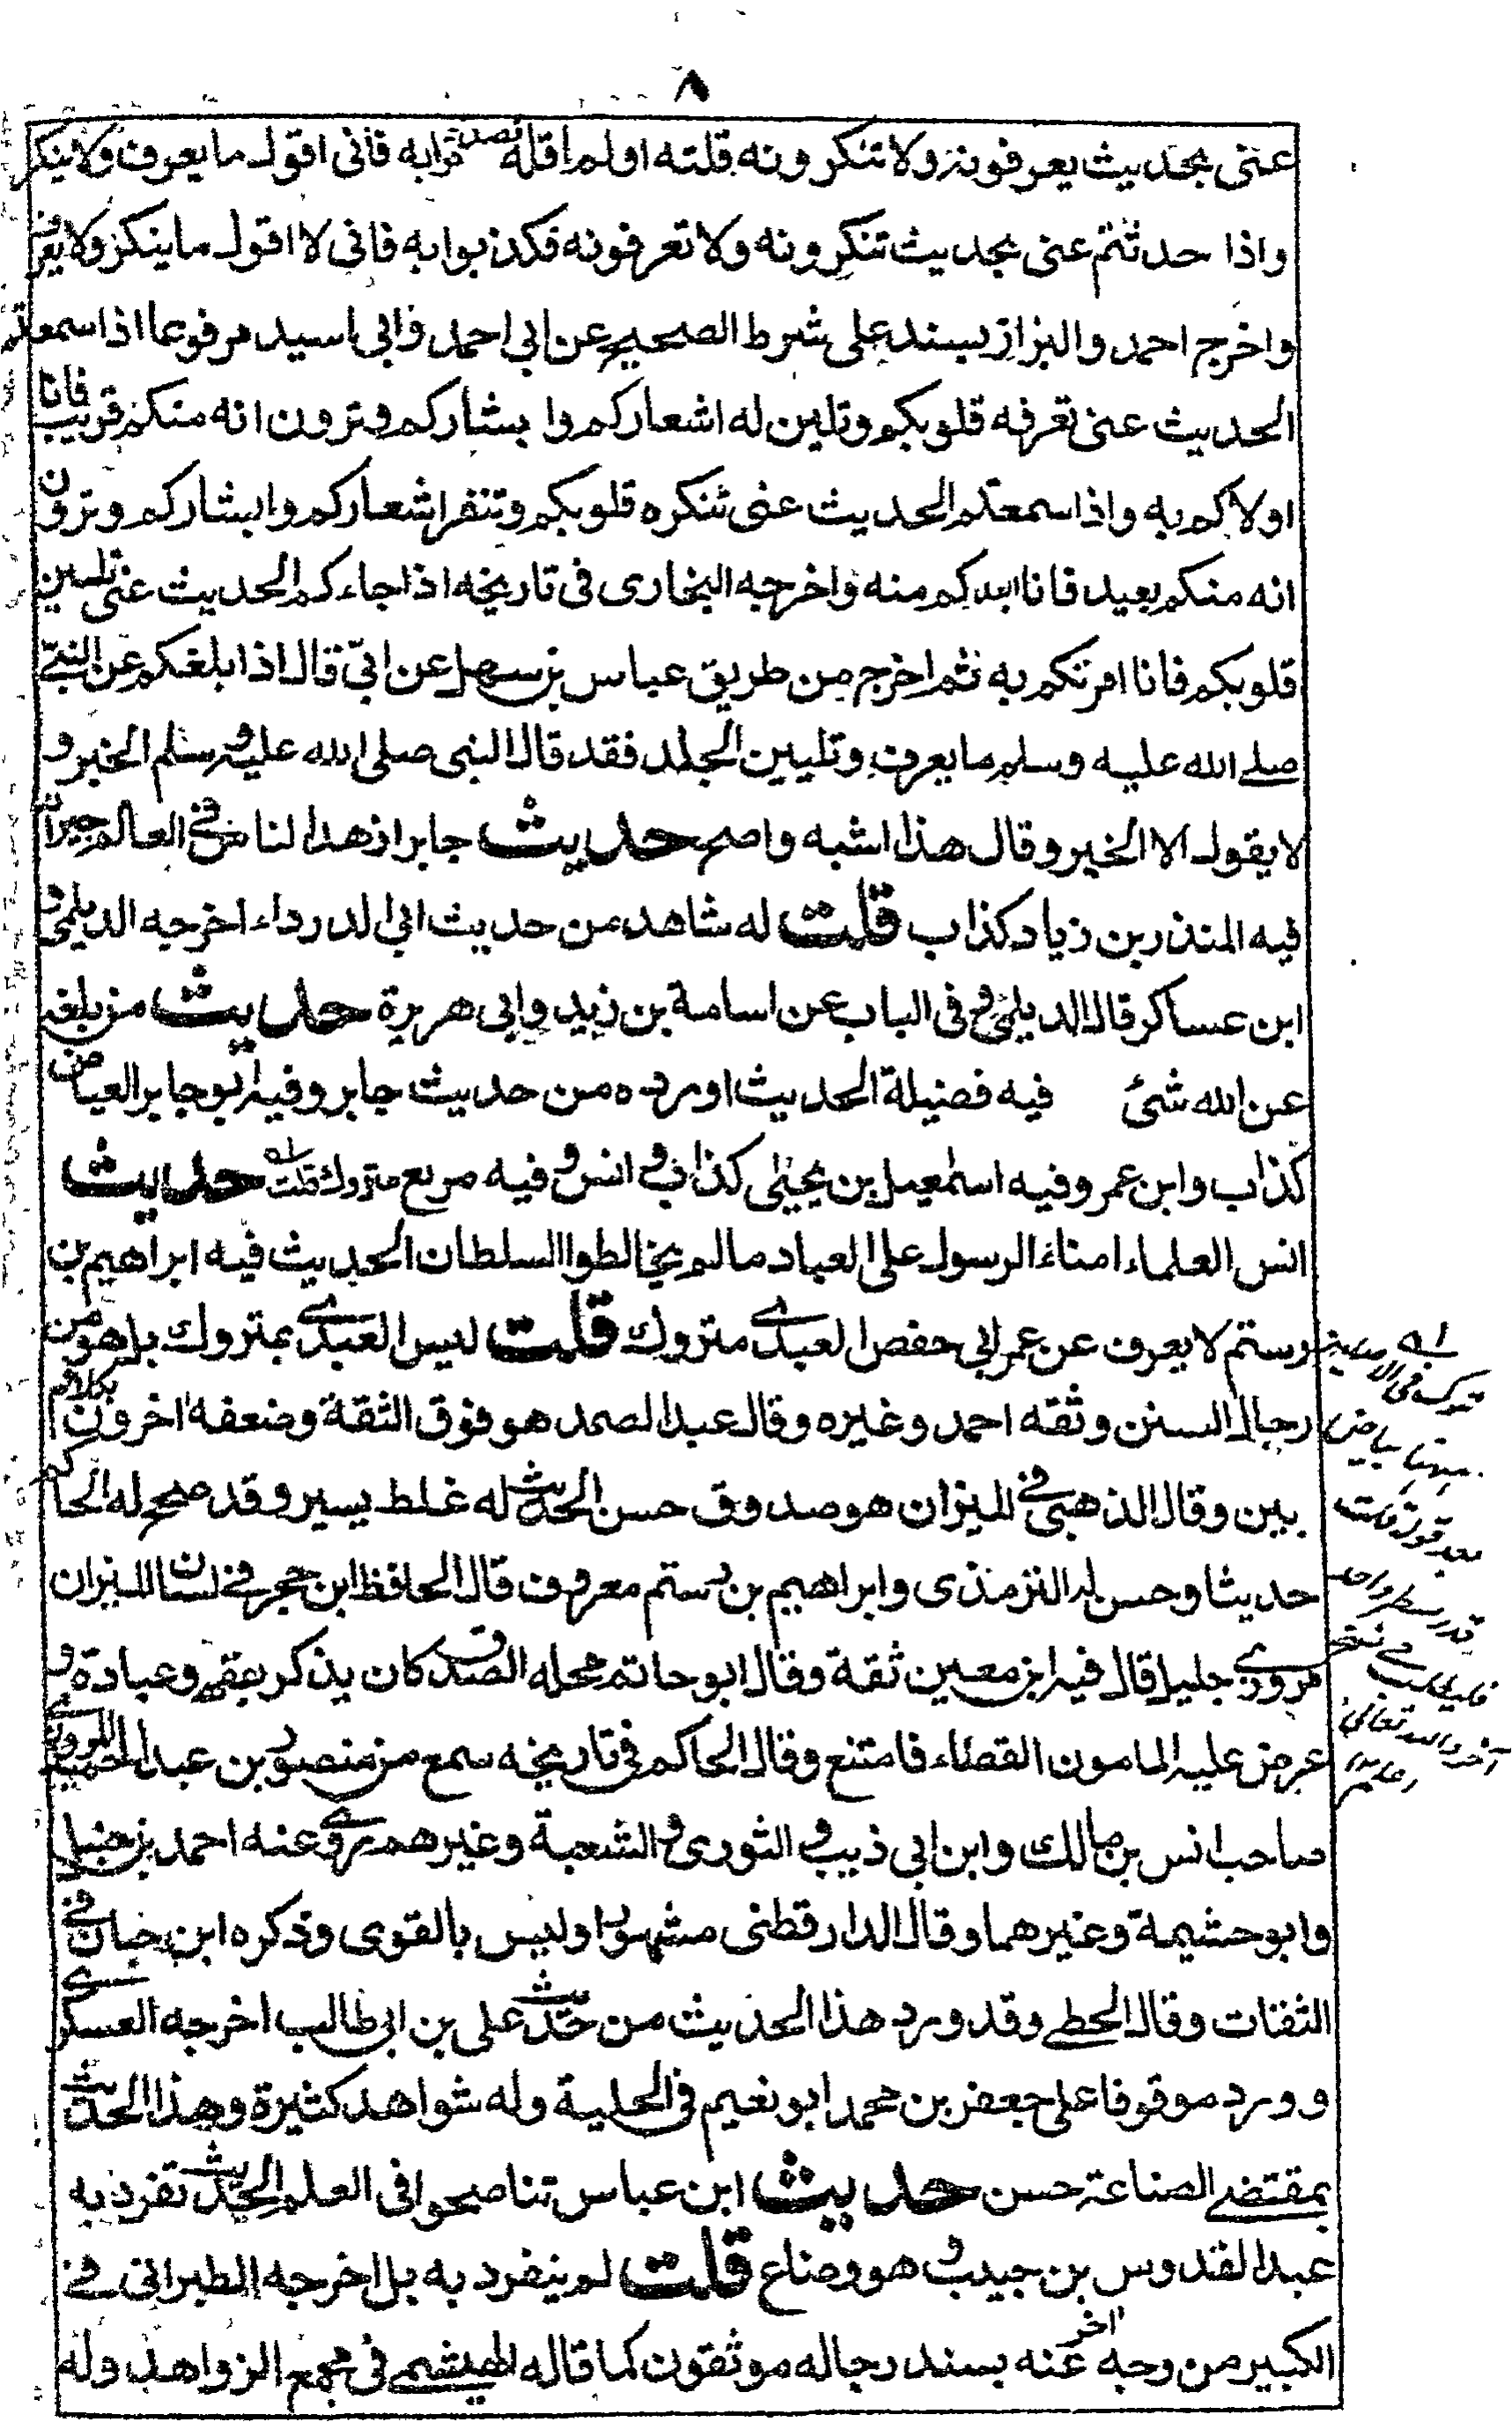 ٨
عنى بحديث يعرفونه ولا تنكرونه قلته او لم اقله فصدقوا به فانى اقول ما يعرف ولا ينكر
واذا حدثتم عنى بحديث تنكرونه ولا تعرفونه فكذبوا به فانى لا اقول ما ينكر ولا يعرف
واخرج احمد والبزاز بسند على شرط الصحيح عن ابي احمد وابي اسيد مرفوعا اذا سمعتم
الحديث عنى تعرفه قلوبكم وتلين له اشعاركم وا بشاركم وترون انه منكم قريب فانا
اولاكم به واذا سمعتم الحديث عنى تنكره قلوبكم وتنفر اشعاركم وابشاركم وترون
انه منكم بعيد فانا ابعدكم منه واخرجه البخارى فى تاريخه اذا جاءكم الحديث عنى تلين
قلوبكم فانا امرتكم به ثم اخرج من طريق عباس بن سهل عن ابيّ قال اذا بلغكم عن النبيّ
صلے الله عليه وسلم ما يعرف وتليين الجلد فقد قال النبى صلى الله عليه وسلم الخير و
لا يقول الا الخير وقال هذا اشبه واصح حديث جابر ازهد الناس فى العالم جيرانه
فيه المنذر بن زياد كذاب قلت له شاهد من حديث ابي الدرداء اخرجه الديلمى و
ابن عساكر قال الديلمى وفى الباب عن اسامة بن زيد وابى هريرة حديث من بلغه
عن الله شئ فيه فضيلة الحديث اورده من حديث جابر وفيه ابو جابر العياضى
كذاب وابن عمر وفيه اسمعيل بن يحيٰى كذاب وانس وفيه مربع متروك قلت حديث
انس العلماء امناء الرسول على العباد ما لم يخالطوا السلطان الحديث فيه ابراهيم بن
رستم لا يعرف عن عمر ابي حفص العبدى متروك قلت ليس العبدى بمتروك بل هو من
رجال السنن وثقه احمد وغيره وقال عبد الصمد هو فوق الثقة وضعفه اخرون بكلام
بين وقال الذهبى فى الميزان هو صدوق حسن الحديث له غلط يسير وقد صحح له الحاكم
حديثا وحسن له الترمذى وابراهيم بن رستم معروف قال الحافظ ابن حجر فى لسان الميزان
مروزى جليل قال فيه ابن معين ثقة وقال ابو حاتم محله الصدق كان يذكر بفقه وعبادة و
عرض عليه المامون القضاء فامتنع وقال الحاكم فى تاريخه سمع من منصور بن عبد الحميد
صاحب انس بن مالك وابن ابي ذيب و الثورى و الشعبة وغيرهم روى عنه احمد بن حنبل
وابو حشيمة وغيرهما وقال الدارقطنى مشهور وليس بالقوى وذكره ابن حبان فى
الثقات وقال الحطى وقد ورد هذا الحديث من حديث على بن ابى طالب اخرجه العسكرى
وورد موقوفا على جعفر بن محمد ابو نعيم فى الحلية وله شواهد كثيرة وهذا الحديث
بمقتضے الصناعة حسن حديث ابن عباس تناصحوا فى العلم الحديث تفرد به
عبد القدوس بن حبيب و هو وضاع قلت لم ينفرد به بل اخرجه الطبرانى فى
الكبير من وجه اخر عنه بسند رجاله موثقون كما قاله الهيشمے فى مجمع الزواهد وله